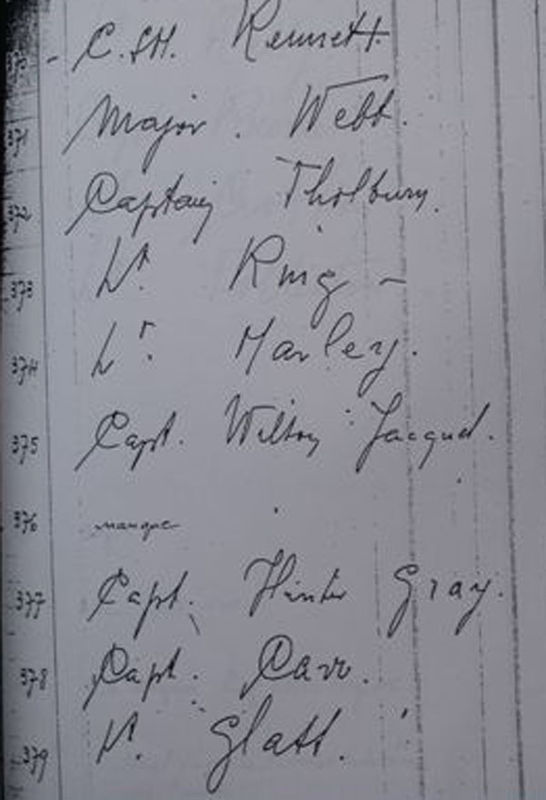 370 - C.SH. Kennett
371 Major. Webb.
372 Captain Tholbury.
373 Lt. Ring -
374 Lr. Marley.
375 Capt. Wilton Jacquet.
376 manque
377 Capt. Hinter Gray.
378 Capt. Carr.
379 Lt. Glatt.